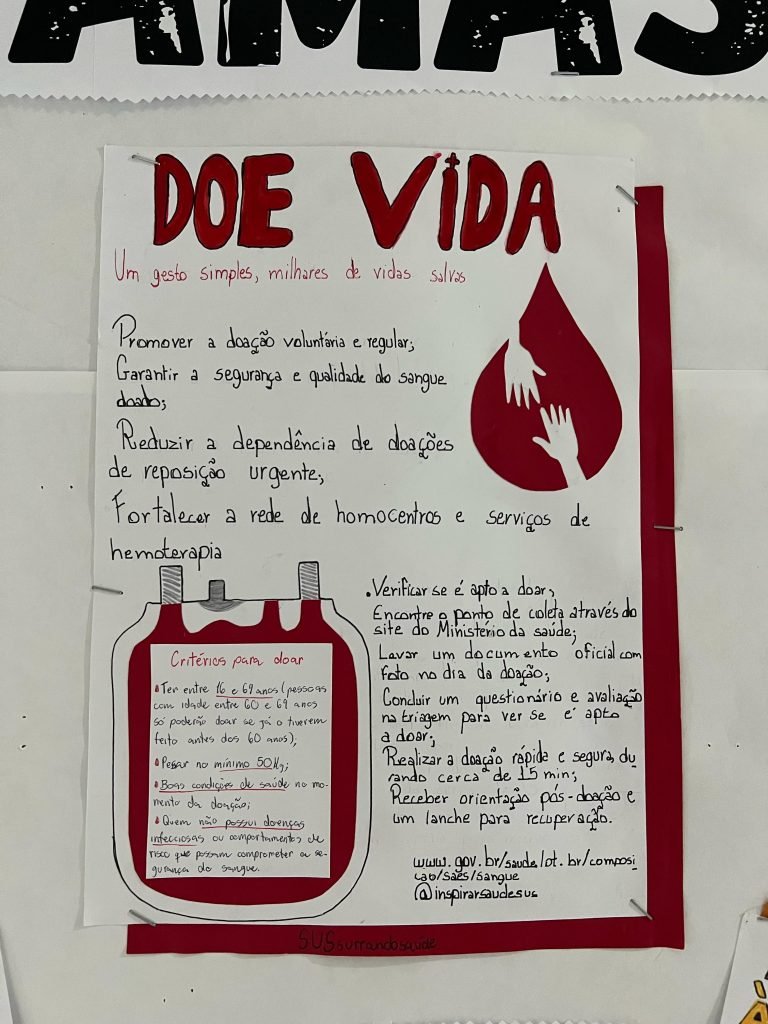 AMAS
DOE VIDA
Um gesto simples, milhares de vidas salvas
Promover a doação voluntária e regular;
Garantir a segurança e qualidade do sangue
doado;
Reduzir a dependência de doações
de reposição urgente;
Fortalecer a rede de homocentros e serviços de
hemoterapia
Critérios para doar
Ter entre 16 e 69 anos (pessoas
com idade entre 60 e 69 anos
só poderão doar se já o tiverem
feito antes dos 60 anos);
Pesar no mínimo 50Kg;
Boas condições de saúde no mo-
mento da doação;
Quem não possui doenças
infecciosas ou comportamentos de
risco que possam comprometer a se-
gurança do sangue.
.Verificar se é apto a doar;
Encontre o ponto de coleta através do
site do Ministério da saúde;
Lavar um documento oficial com
foto no dia da doação;
Concluir um questionário e avaliação
na triagem para ver se é apto
a doar;
Realizar a doação rápida e segura, du
rando cerca de 15 min;
Receber orientação pós-doação e
um lanche para recuperação.
www.gov.br/saude/pt.br/composi
cao/saes/sangue
@inspirarsaudesus
SUSsurrandosaúde